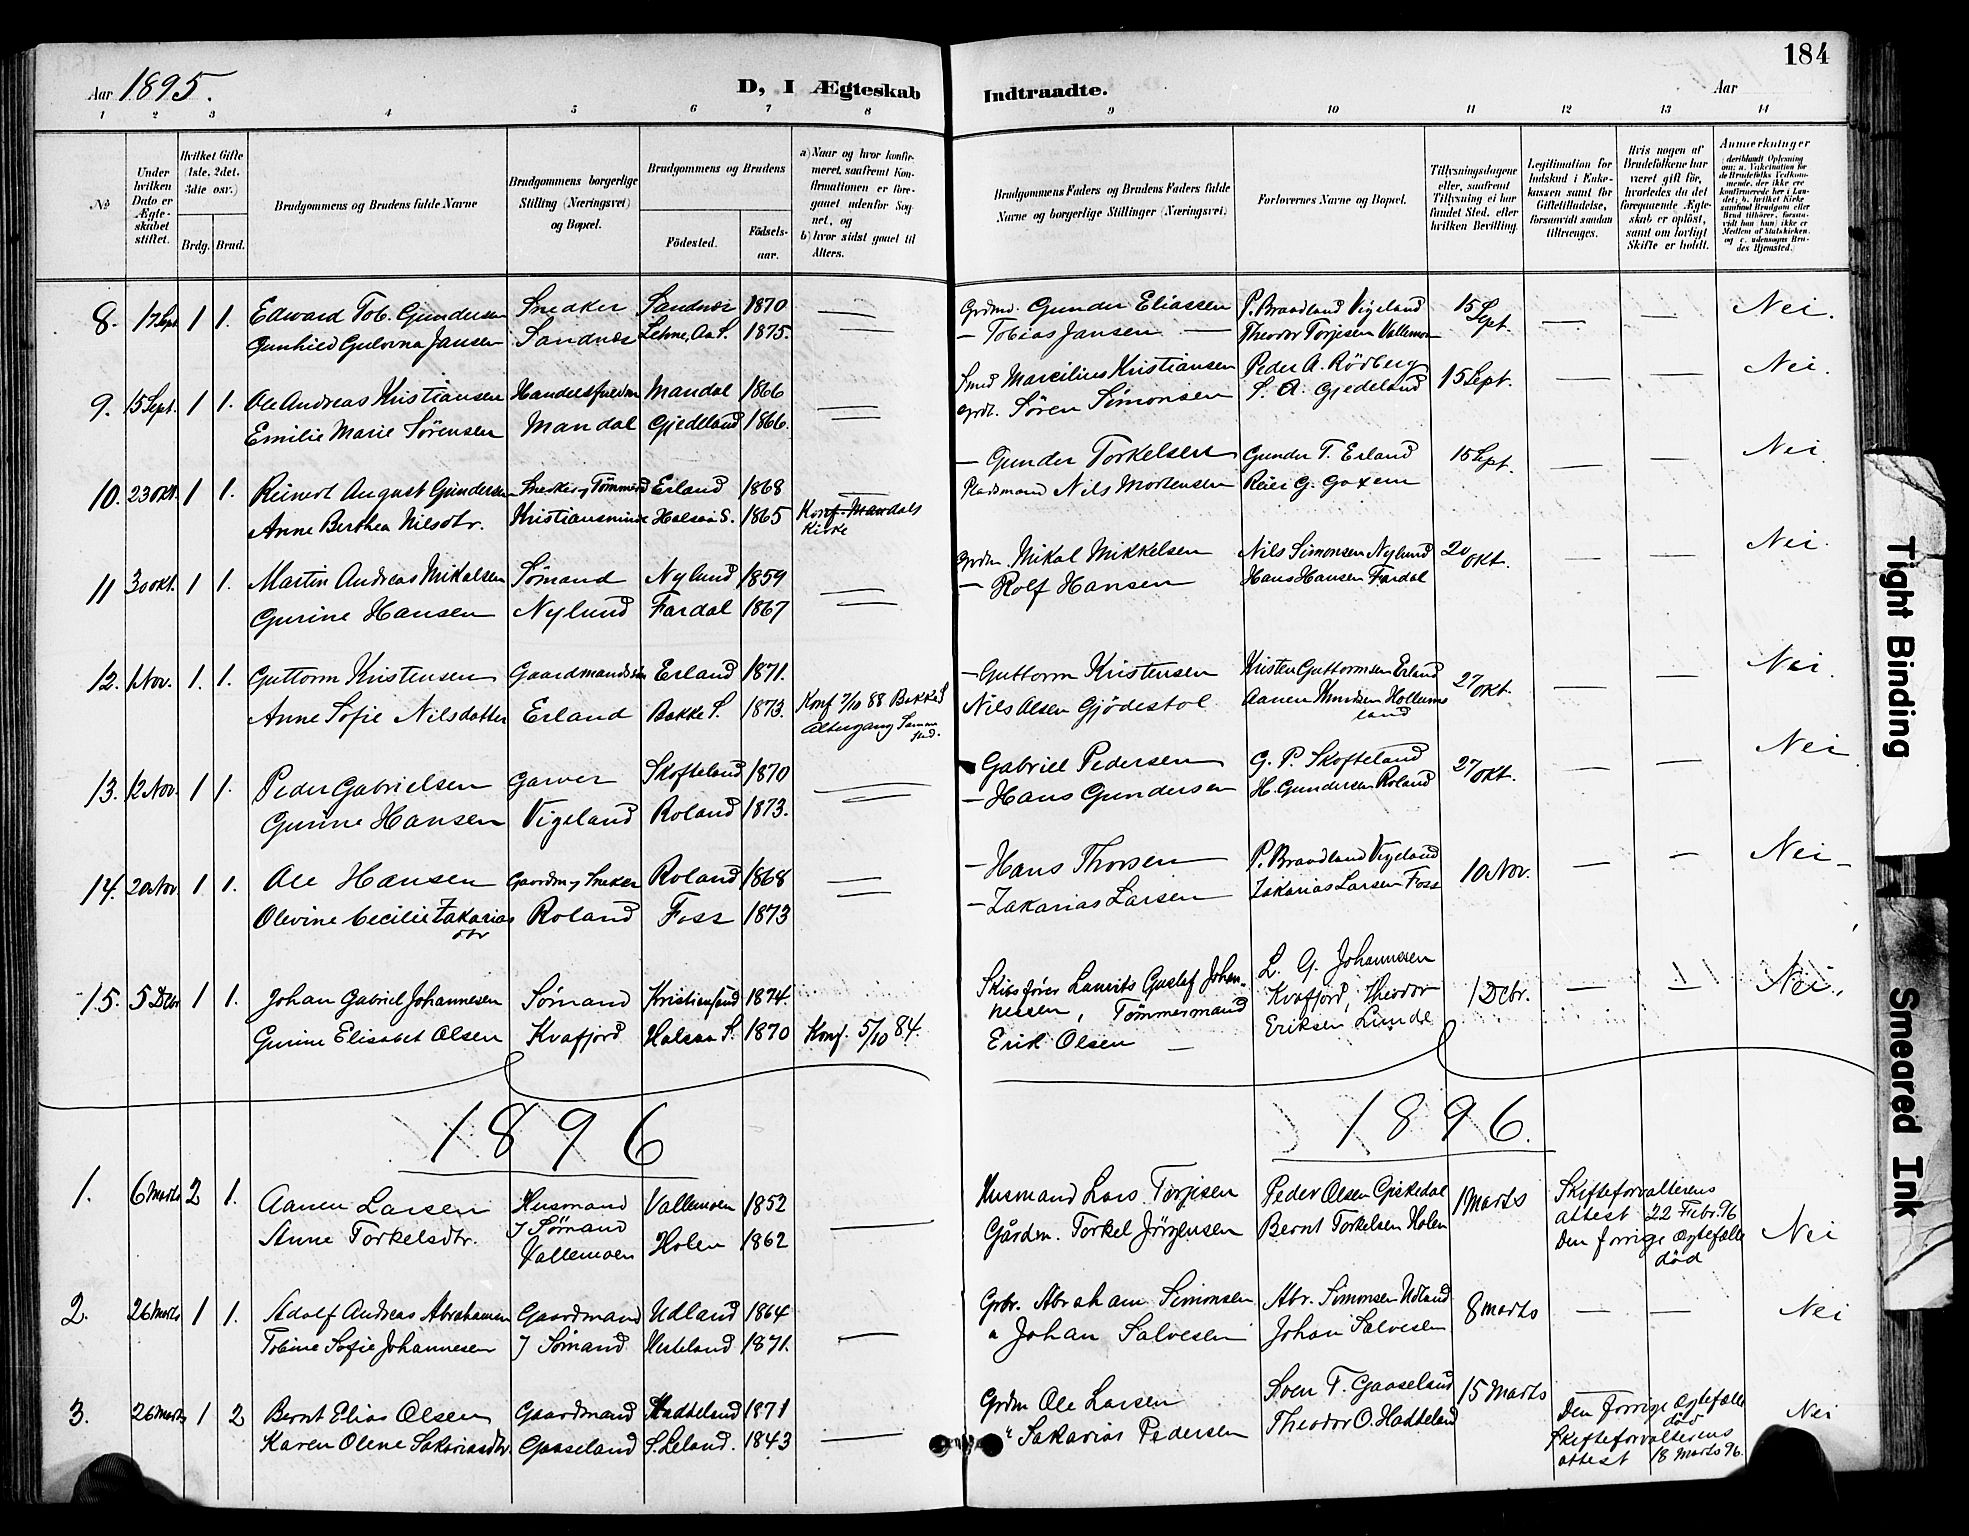 184
Aar 1895. D, I Ægteskab Indtraadte. Aar
1 2 3 4 5 6 7 8 9 10 11 12 13 14
No
Under hvilken Dato er Ægteskabet stiftet.
Hvilket Gifte (1ste, 2det, 3die osv.)
Brdg. Brud.
Brudgommens og Brudens fulde Navne
Brudgommens borgerlige Stilling (Næringsvei) og Bopæl.
Brudgommens og Brudens
Födested. Födsels-aar.
a) Naar og hvor konfirmeret, saafremt Konfirmationen er foregaaet udenfor Sognet, og
b) hvor sidst gaaet til Alters.
Brudgommens Faders og Brudens Faders fulde Navne og borgerlige Stillinger (Næringsvei)
Forlovernes Navne og Bopæl.
Tillysningsdagene eller, saafremt Tillysning ei har fundet Sted, efter hvilken Bevilling.
Legitimation for Indskud i Enkekassen samt for Giftetilladelse, forsaavidt saadan tiltrænges.
Hvis nogen af Brudefolkene har været gift før, hvorledes da det foregaaende Ægteskab er opløst, samt om lovligt Skifte er holdt.
Anmærkninger
8. 17 Sept 1 1. Edward Tob. Gundersen Snedker Sandnæs 1870 Grdmd. Gunder Eliassen P. Braadland Vigeland 15 Sept. — — Nei.
Gunhild Gulovna Jansen Sandnæs Lehne, Aa S. 1875. — Tobias Jansen — Theodor Torjesen Vallemoen
9. 15 Sept. 1 1. Ole Andreas Kristiansen Mandal 1866 Smed Marcilius Kristiansen Peder A. Rödberg 15 Sept. — — Nei.
Emilie Marie Sørensen Mandal Gjedeland 1866. Søren Simonsen S. A. Gjedeland
10. 23 Okt. 1 1. Reinert August Gundersen Snedker og Tømmerm Erland 1868 — Gunder Torkelsen Gunder T. Erland 15 Sept. — — Nei
Anne Berthea Nilsdtr. Kristiansminde Halsaa S. 1865 Konf. Mandals Kirke Pladsmand Nils Mortensen Reier G. Goxem
11 30 Okt. 1 1. Martin Andreas Mikalsen Sømand Nylund 1859 Grdm. Mikal Mikkelsen Nils Simonsen Nylund 20 Okt. — — Nei.
Gurine Hansen Nylund Fardal 1867 — Rolf Hansen Hans Hansen Fardal
12. 1 Nov. 1. 1. Guttorm Kristensen Gaardmandssøn Erland 1871. — Guttorm Kristensen Kristen Guttormsen Erland 27 Okt. — — Nei
Anne Sofie Nilsdatter Erland Bakke S. 1873. Konf 7/10 88 Bakke S Altergang Samme Sted. Nils Olsen Gjödestol Aanen Knudsen Hollumsland
13. 12 Nov. 1 1. Peder Gabrielsen Garver Skofteland 1870 — Gabriel Pedersen G. P. Skofteland 27 Okt. — — Nei
Gurine Hansen Vigeland Roland 1873. — Hans Gundersen H. Gundersen Roland
14. 20 Nov. 1 1. Ole Hansen Gaardm. og Sneker Roland 1868 — Hans Thorsen P. Braadland Vigeland 10 Nov. — — Nei —
Olevine Cecilie Zakariasdtr Roland Foss 1873 — Zakarias Larsen Zakarias Larsen Foss
15. 5 Dcbr 1 1. Johan Gabriel Johannesen Sømand Kristiansund 1874. Skibsfører Laurits Gustaf Johannesen, Tömmermand L. G. Johannesen Kvafjord, Theodor 1 Dcbr. — — Nei.
Gurine Elisabet Olsen Kvafjord Halsaa S. 1870 Konf. 5/10 84. Erik Olsen — Eriksen Lunde
1896 1896.
1. 6 Marts 2 1. Aanen Larsen Husmand Vallemoen 1852 Husmand Lars Torjisen Peder Olsen Gjskedal 1 Marts Skifteforvalterens attest 22 Febr. 96
Anne Torkelsdtr. J Sømand Vallemoen Holen 1862 — Gårdm. Torkel Jörgensen Bernt Torkelsen Holen Den forrige Ægtefælle död Nei
2. 26 Marts 1 1. Adolf Andreas Abrahamsen Gaardmand Udland 1864 Grbr. Abraham Simonsen Abr. Simonsen Udland 8 Marts — — Nei
Tobine Sofie Johannesen J Sømand Hesteland 1871. — " Johan Salvesen Johan Salvesen
3. 26 Marts 1 2 Bernt Elias Olsen Gaardmand Haddeland 1871 Grdm Ole Larsen Sven T. Gaaseland 15 Marts Den forrige Ægtefælle död Nei
Karen Olene Sakariasdtr. Gaaseland S. Leland. 1843 — " Sakarias Pedersen Theodor O. Haddeland Skifteforvalterens attest 18 Marts 96.
Tight Binding
Smeared Ink